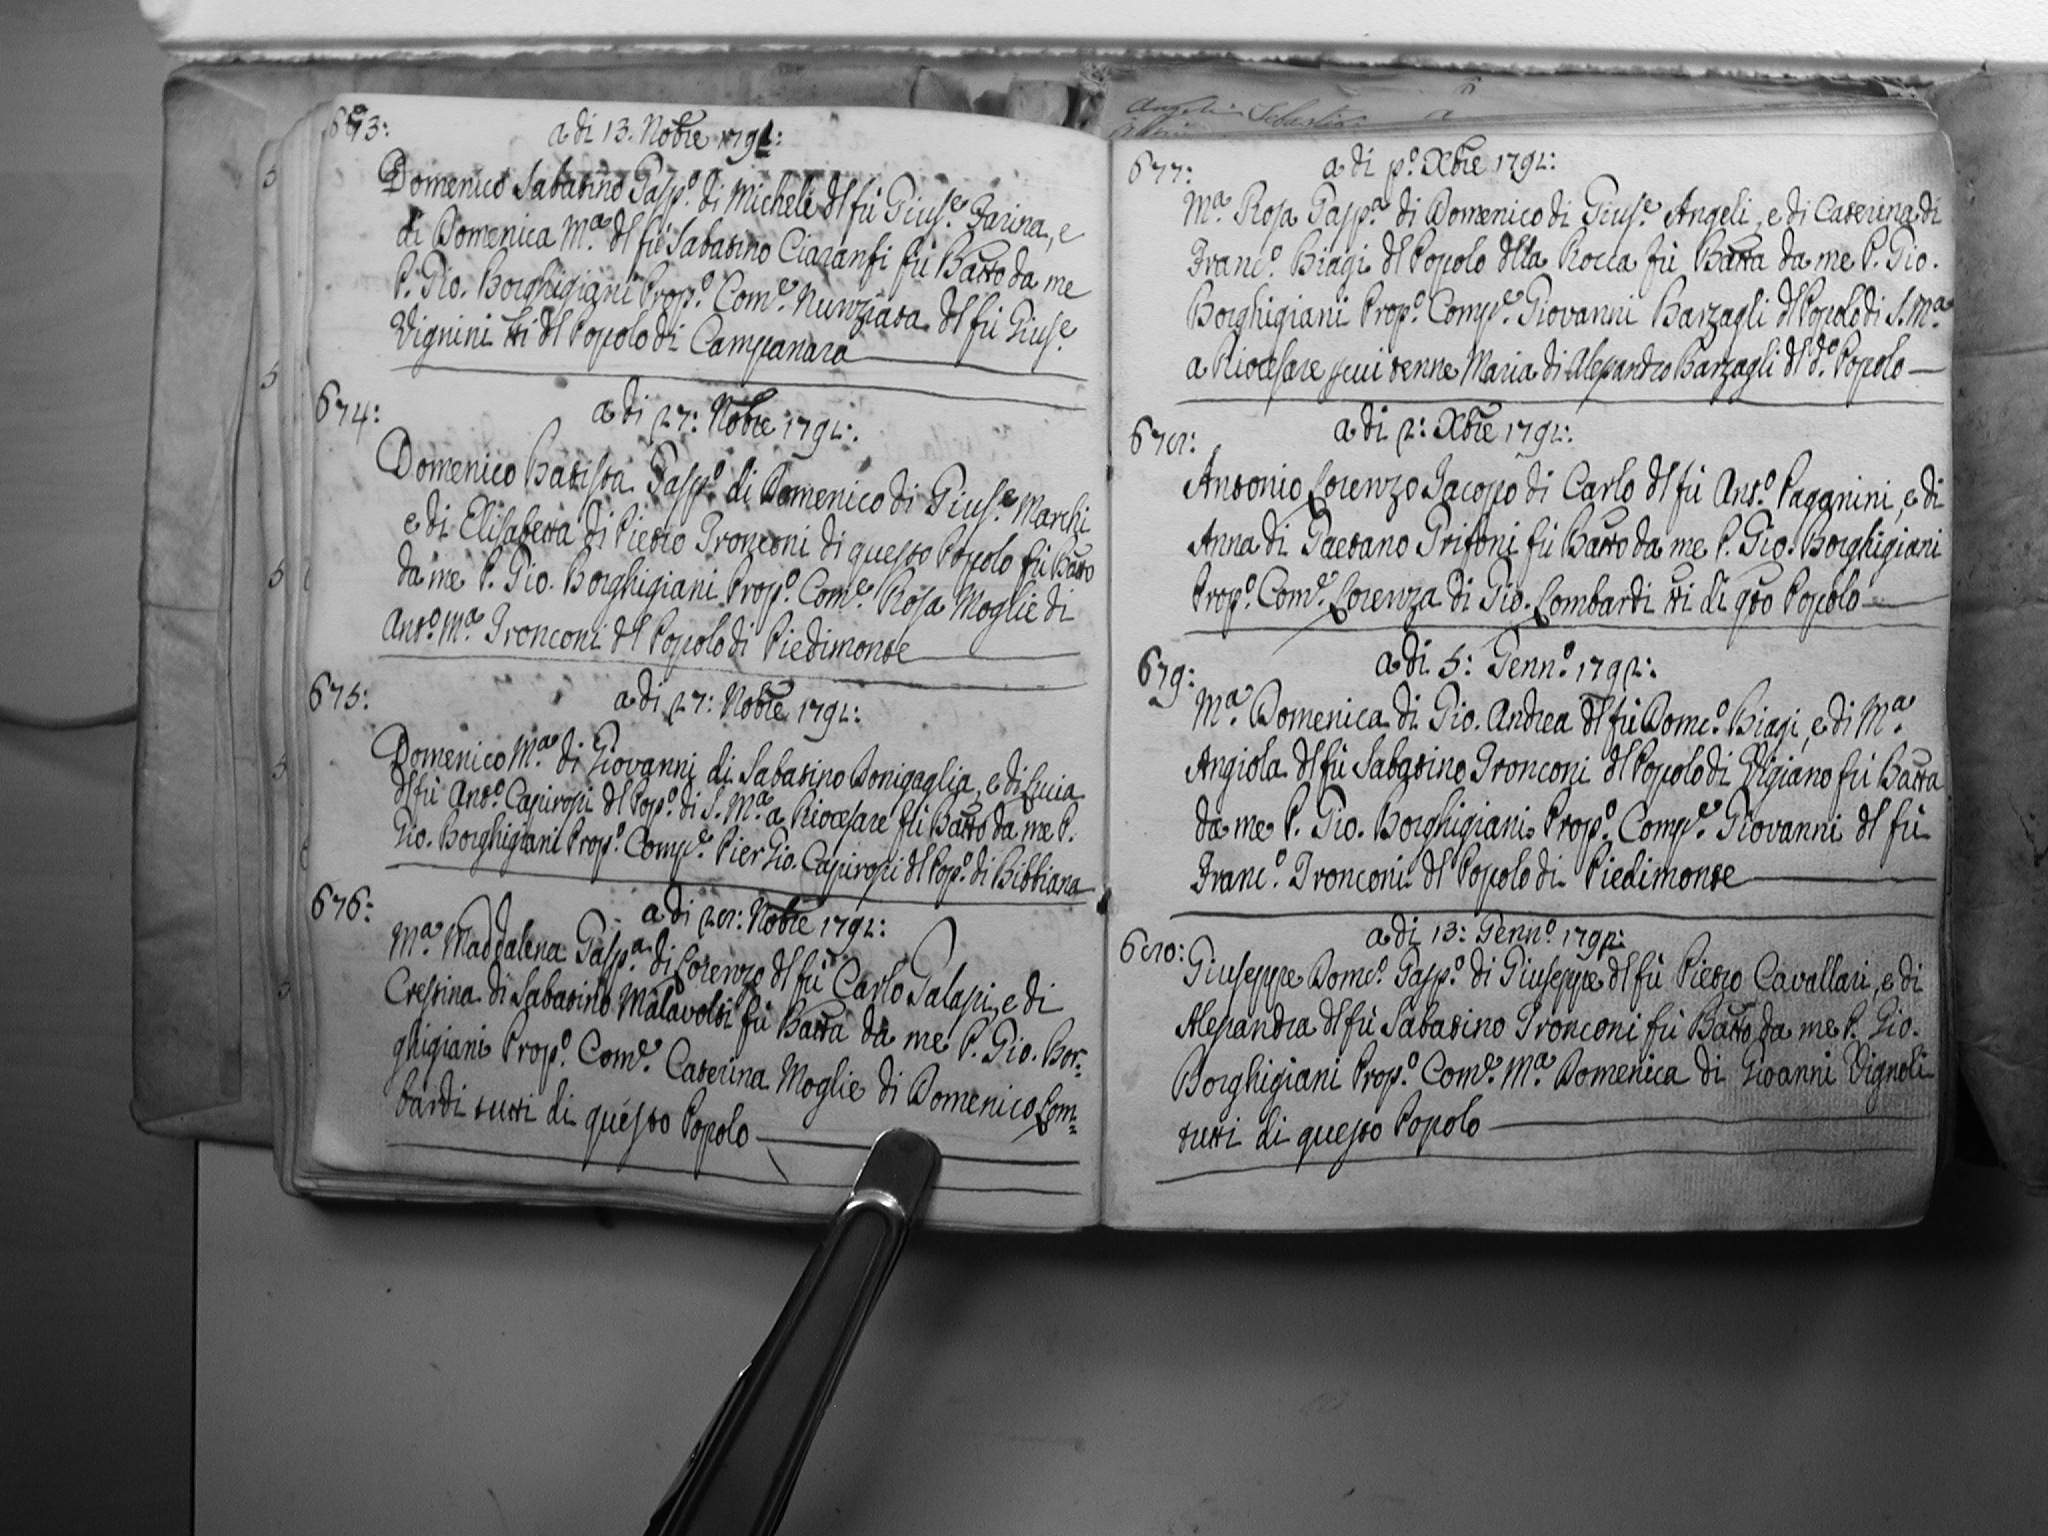 673:
a di 13. Nobre 1792:
Domenico Sabatino Gasp.º di Michele dl fù Gius.e Farina, e
di Domenica M.a dl fù Sabatino Ciaranfi fù Batto da me
P. Gio. Borghigiani Prop.º Com.e Nunziata dl fù Gius.e
Vignini tti dl Popolo di Campanara
674:
a di 27: Nobre 1792:
Domenico Batista Gasp.º di Domenico di Gius.e Marchi
e di Elisabetta di Pietro Tronconi di questo Popolo fù Batto
da me P. Gio. Borghigiani Prop.º Com.e Rosa Moglie di
Ant.º M.a Tronconi dl Popolo di Piedimonte
675:
a di 27: Nobre 1792:
Domenico M.a di Giovanni di Sabatino Donigaglia, e di Lucia
dl fù Ant.º Capirossi dl Pop.º di S. M.a a Riocesare fù Batto da me P.
Gio. Borghigiani Prop.º Comp.e Pier Gio. Capirossi dl Pop.º di Bibbiana
676:
a di 28: Nobre 1792:
M.a Maddalena Gasp.a di Lorenzo dl fù Carlo Galassi, e di
Crestina di Sabatino Malavolti fù Batta da me P. Gio. Bor=
ghigiani Prop.º Com.e Caterina Moglie di Domenico Lom=
bardi tutti di questo Popolo
Angeli Sebastia
677:
a di p.º Xbre 1792:
M.a Rosa Gasp.a di Domenico di Gius.e Angeli, e di Caterina di
Franc.º Biagi dl Popolo dlla Rocca fù Batta da me P. Gio.
Borghigiani Prop.º Comp.e Giovanni Barzagli dl Popolo di S. M.a
a Riocesare p cui tenne Maria di Alessandro Barzagli dl d.º Popolo
678:
a di 2: Xbre 1792:
Antonio Lorenzo Jacopo di Carlo dl fù Ant.º Paganini, e di
Anna di Gaetano Grifoni fù Batto da me P. Gio. Borghigiani
Prop.º Com.e Lorenza di Gio. Lombardi tti di qto Popolo
679:
a di 5: Genn.º 1792:
M.a Domenica di Gio. Andrea dl fù Dom.cº Biagi, e di M.a
Angiola dl fù Sabatino Tronconi dl Popolo di Vigiano fù Batta
da me P. Gio. Borghigiani Prop.º Comp.e Giovanni dl fù
Franc.º Tronconi dl Popolo di Piedimonte
680:
a di 13: Genn.º 1792:
Giuseppe Dom.cº Gasp.º di Giuseppe dl fù Pietro Cavallari, e di
Alessandra dl fù Sabatino Tronconi fù Batto da me P. Gio.
Borghigiani Prop.º Com.e M.a Domenica di Giovanni Vignoli
tutti di questo Popolo